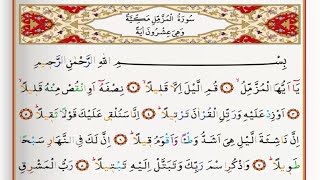 سُورَةُ الْمُزَّمِّلِ مَكِّيَّةٌ
وَهِيَ عِشْرُونَ اٰيَةً
بِسْمِ اللّٰهِ الرَّحْمٰنِ الرَّحِيمِ
يَٓا اَيُّهَا الْمُزَّمِّلُۙ قُمِ الَّيْلَ اِلَّا قَلِيلًاۙ نِصْفَهُٓ اَوِ انْقُصْ مِنْهُ قَلِيلًاۙ
اَوْ زِدْ عَلَيْهِ وَرَتِّلِ الْقُرْاٰنَ تَرْتِيلًاۜ اِنَّا سَنُلْقِي عَلَيْكَ قَوْلًا ثَقِيلًا
اِنَّ نَاشِئَةَ الَّيْلِ هِيَ اَشَدُّ وَطْـًٔا وَاَقْوَمُ قِيلًاۜ اِنَّ لَكَ فِي النَّهَارِ سَبْحًا
طَوِيلًاۜ وَاذْكُرِ اسْمَ رَبِّكَ وَتَبَتَّلْ اِلَيْهِ تَبْتِيلًاۜ رَبُّ الْمَشْرِقِ